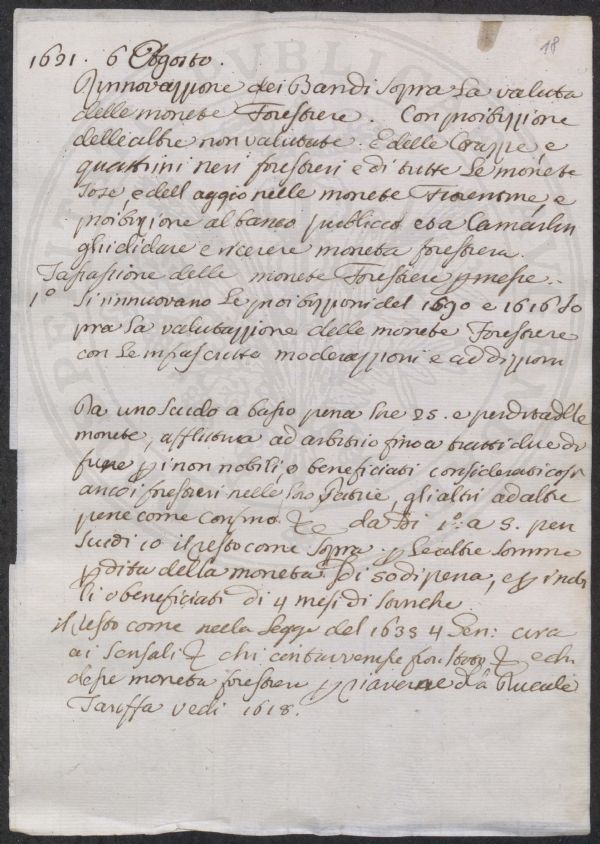 18
1691. 6 Agosto.
Rinnovazzione dei Bandi sopra la valuta
delle monete Forestiere. Con proibizzione
dell altre non valutate. E delle Crazze, e
quattrini neri forestieri e di tutte le monete
tose, e dell aggio nelle monete Fiorentine, e
proibizione al banco publico e da Camarlin
ghi di dare e ricevere moneta forestiera.
Tassazione delle monete Forestiere permesse.
1º Si rinnuovano le proibizzioni del 1690 e 1616 so
pra la valutazzione delle monete Forestiere
con le infrascritte moderazzioni e addizzioni
Da uno scudo a basso pena lire 25. e perdita delle
monete, afflittiva ad arbitrio fino a tratti due di
fune per i non nobili o beneficiati considerati così
anco i forestieri nelle loro Patrie, gli altri ad altre
pene come confino &c da Di 1º a 5. pen
scudi 10 il resto come sopra. per le altre somme
perdita della moneta Di 50 di pena, e per i nobi
li o beneficiati di 4 mesi di Stinche
il resto come nella Legge del 1633 4 Gen: circa
ai sensali &c chi contravvenisse &c e chi
desse moneta forestiera per riaverne Ducale
Tariffa vedi 1618.